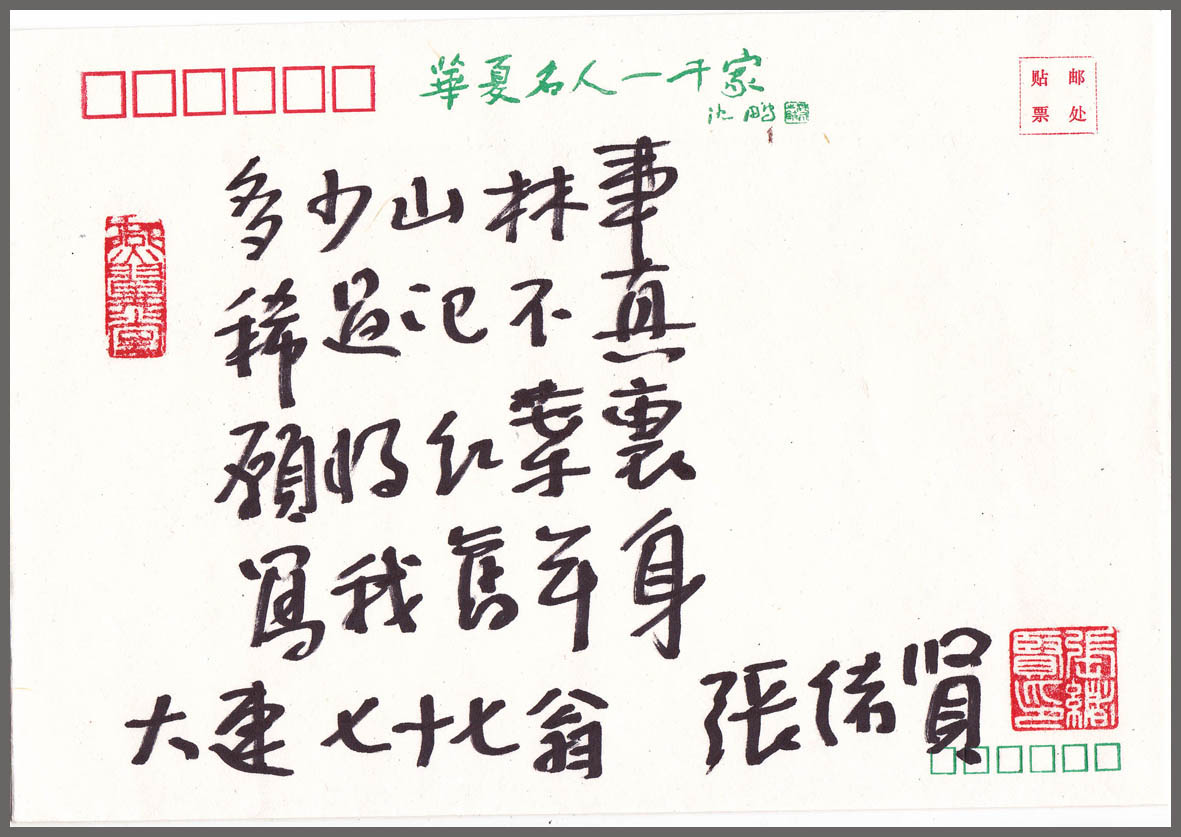 華夏名人一千家
沈鹏
贴邮
票处
多少山林事
稀過记不真
願将红葉裏
寫我舊年身
大連七十七翁 張緒賢
張緒賢印